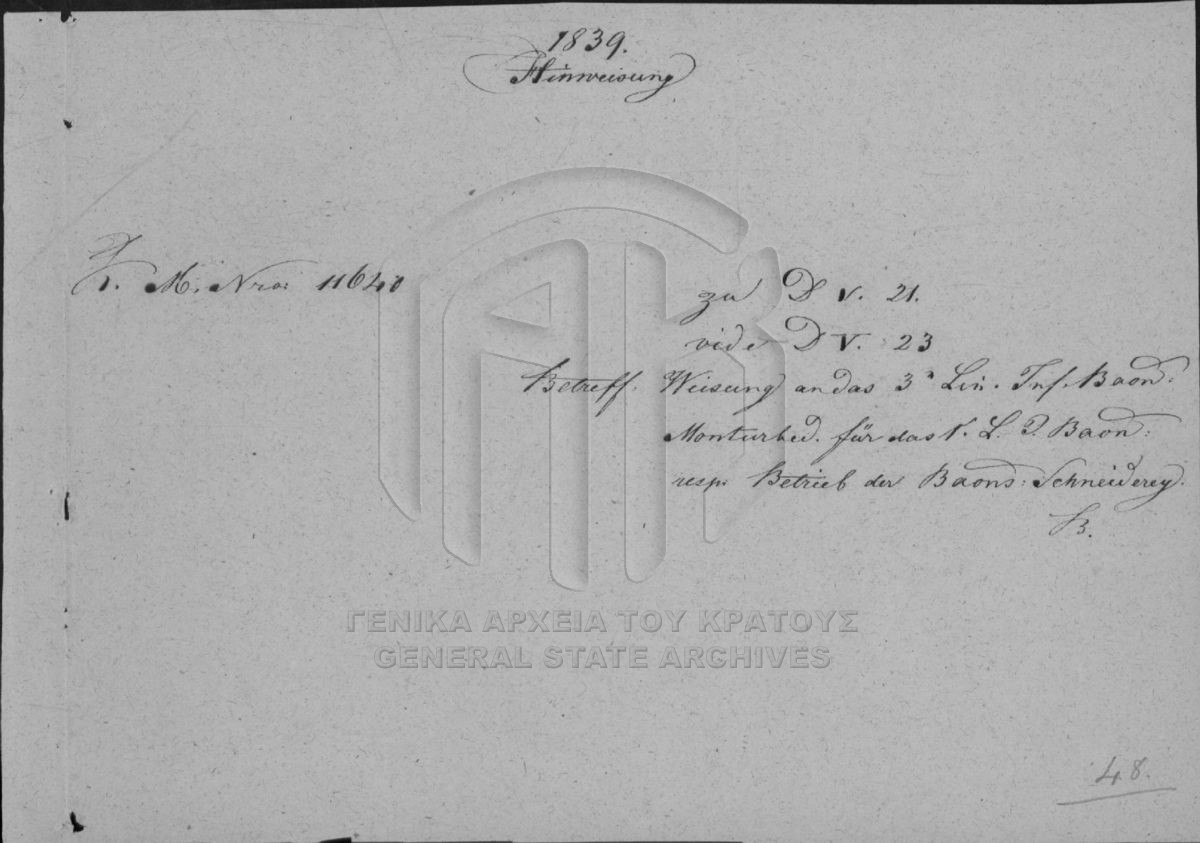 1839.
Hinweisung
K. M. Nro: 11640
zu D V. 21.
vide D V. 23
Betreff. Weisung an das 3ⁿ Lin. Inf. Baon:
Monturbed. für das 1. L. I. Baon:
resp. Betrieb der Baons: Schneiderey.
B.
ΓΕΝΙΚΑ ΑΡΧΕΙΑ ΤΟΥ ΚΡΑΤΟΥΣ
GENERAL STATE ARCHIVES
48.